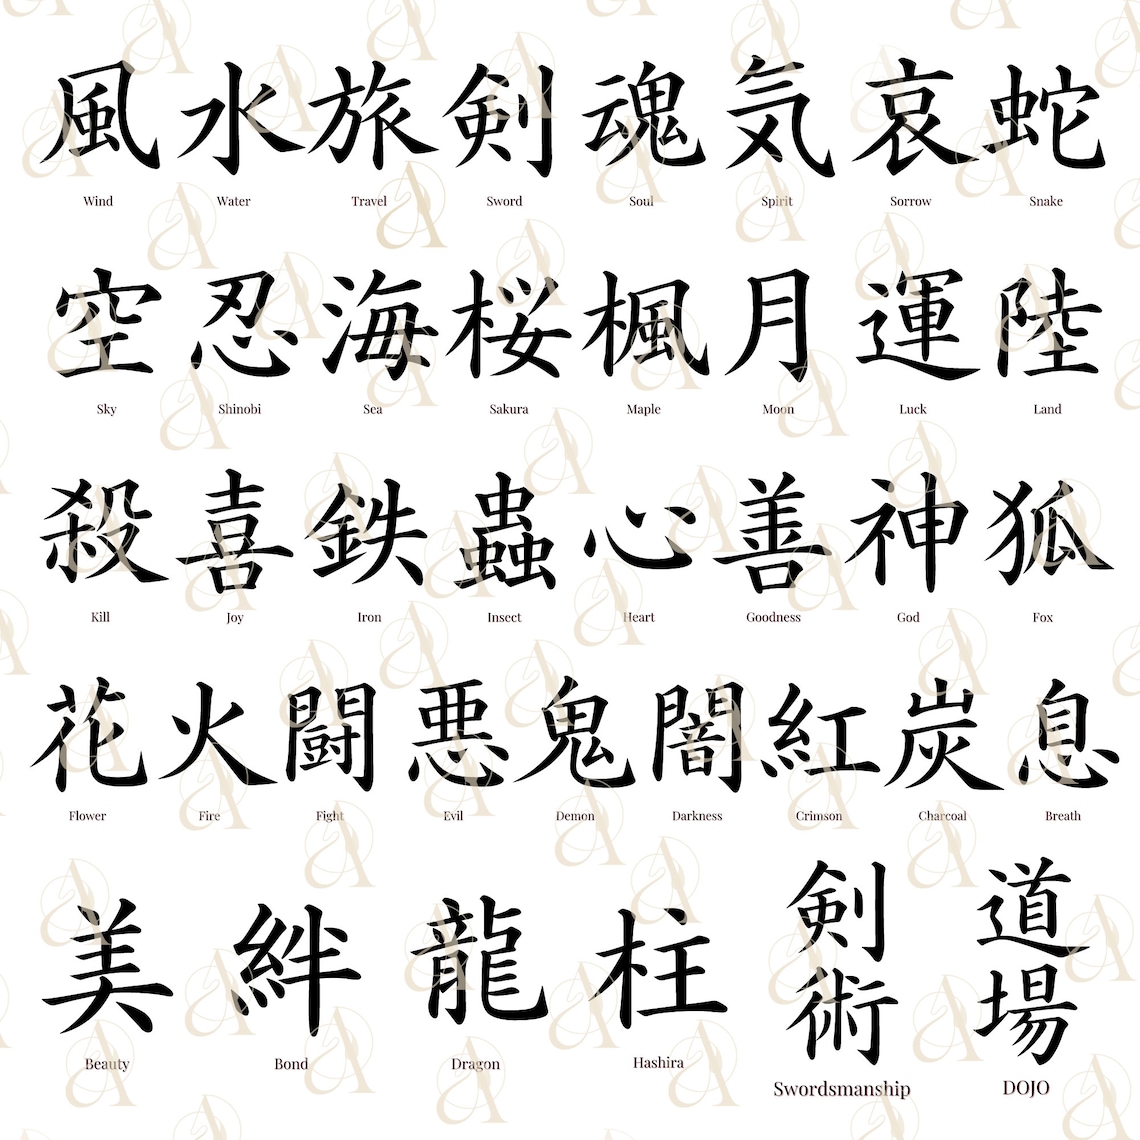 風 水 旅 剣 魂 気 哀 蛇
Wind Water Travel Sword Soul Spirit Sorrow Snake
空 忍 海 桜 楓 月 運 陸
Sky Shinobi Sea Sakura Maple Moon Luck Land
殺 喜 鉄 蟲 心 善 神 狐
Kill Joy Iron Insect Heart Goodness God Fox
花 火 闘 悪 鬼 闇 紅 炭 息
Flower Fire Fight Evil Demon Darkness Crimson Charcoal Breath
美 絆 龍 柱 剣術 道場
Beauty Bond Dragon Hashira Swordsmanship DOJO